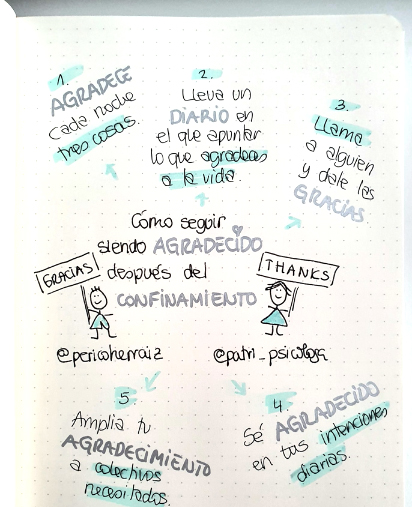 1.
AGRADECE
cada noche
tres cosas.
2.
Lleva un
DIARIO en
el que apuntar
lo que agradeces
a la vida.
3.
Llama
a alguien
y dale las
GRACIAS.
Cómo seguir
siendo AGRADECIDO
después del
CONFINAMIENTO
GRACIAS
THANKS
@pericoherraiz
@patri_psicologa
4.
Sé AGRADECIDO
en tus intenciones
diarias.
5.
Amplia tu
AGRADECIMIENTO
a colectivos
necesitados.